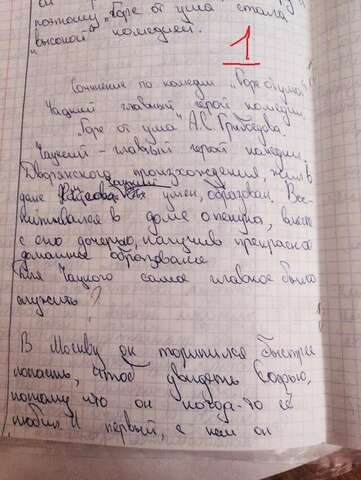 поэтому „Горе от ума стала
"высокой" комедией.
1
Сочинение по комедии „Горе от ума"
Чацкий главный герой комедии
„Горе от ума" А.С. Грибоедова.
Чацкий – главный герой комедии.
Дворянского происхождения, жил в
доме Чацкий умен, образован. Вос-
питывался в доме опекуна, вместе
с его дочерью, получив прекрасное
домашнее образование
Для Чацкого самое главное было
служить ?
В Москву он торопился быстрее
попасть, чтоб увидеть Софью,
потому что он когда-то её
любил. И первый, с кем он